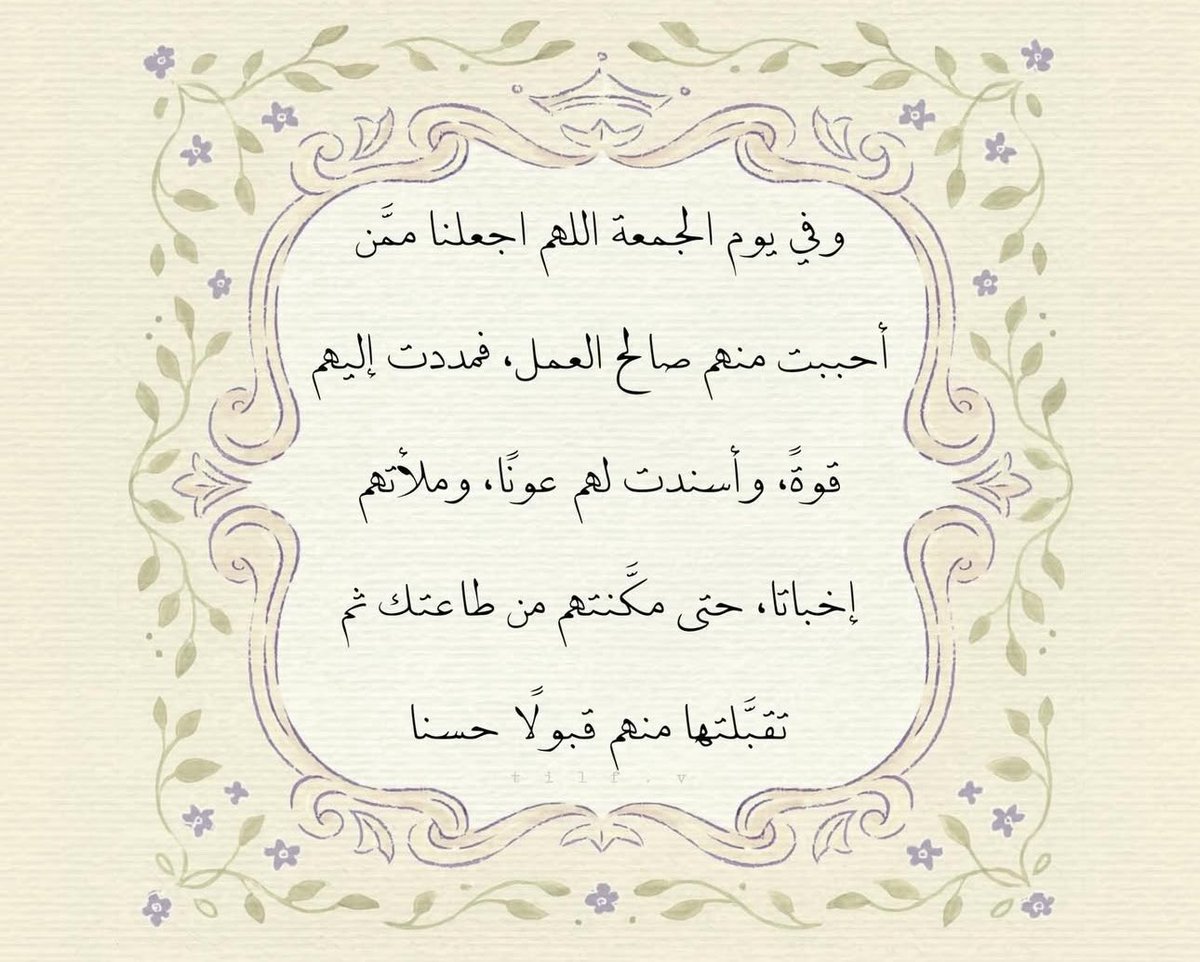 وفي يوم الجمعة اللهم اجعلنا ممَّن
أحببت منهم صالح العمل، فمددت إليهم
قوةً، وأسندت لهم عونًا، وملأتهم
إخباتا، حتى مكَّنتهم من طاعتك ثم
تقبَّلتها منهم قبولًا حسنا
tilf.v